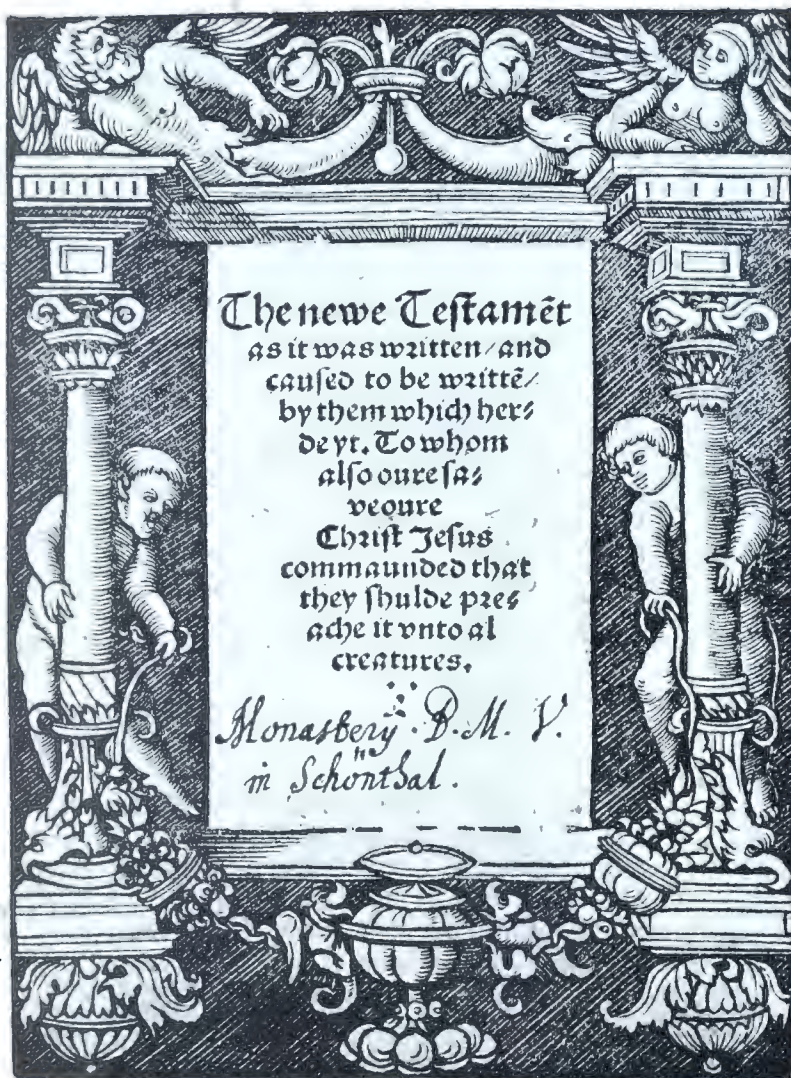 The newe Testamēt
as it was written/and
caused to be writtē/
by them which her⸗
de yt. To whom
also oure sa⸗
veoure
Christ Jesus
commaunded that
they shulde pre⸗
ache it vnto al
creatures.
Monastery B. M. V.
in Schonthal.